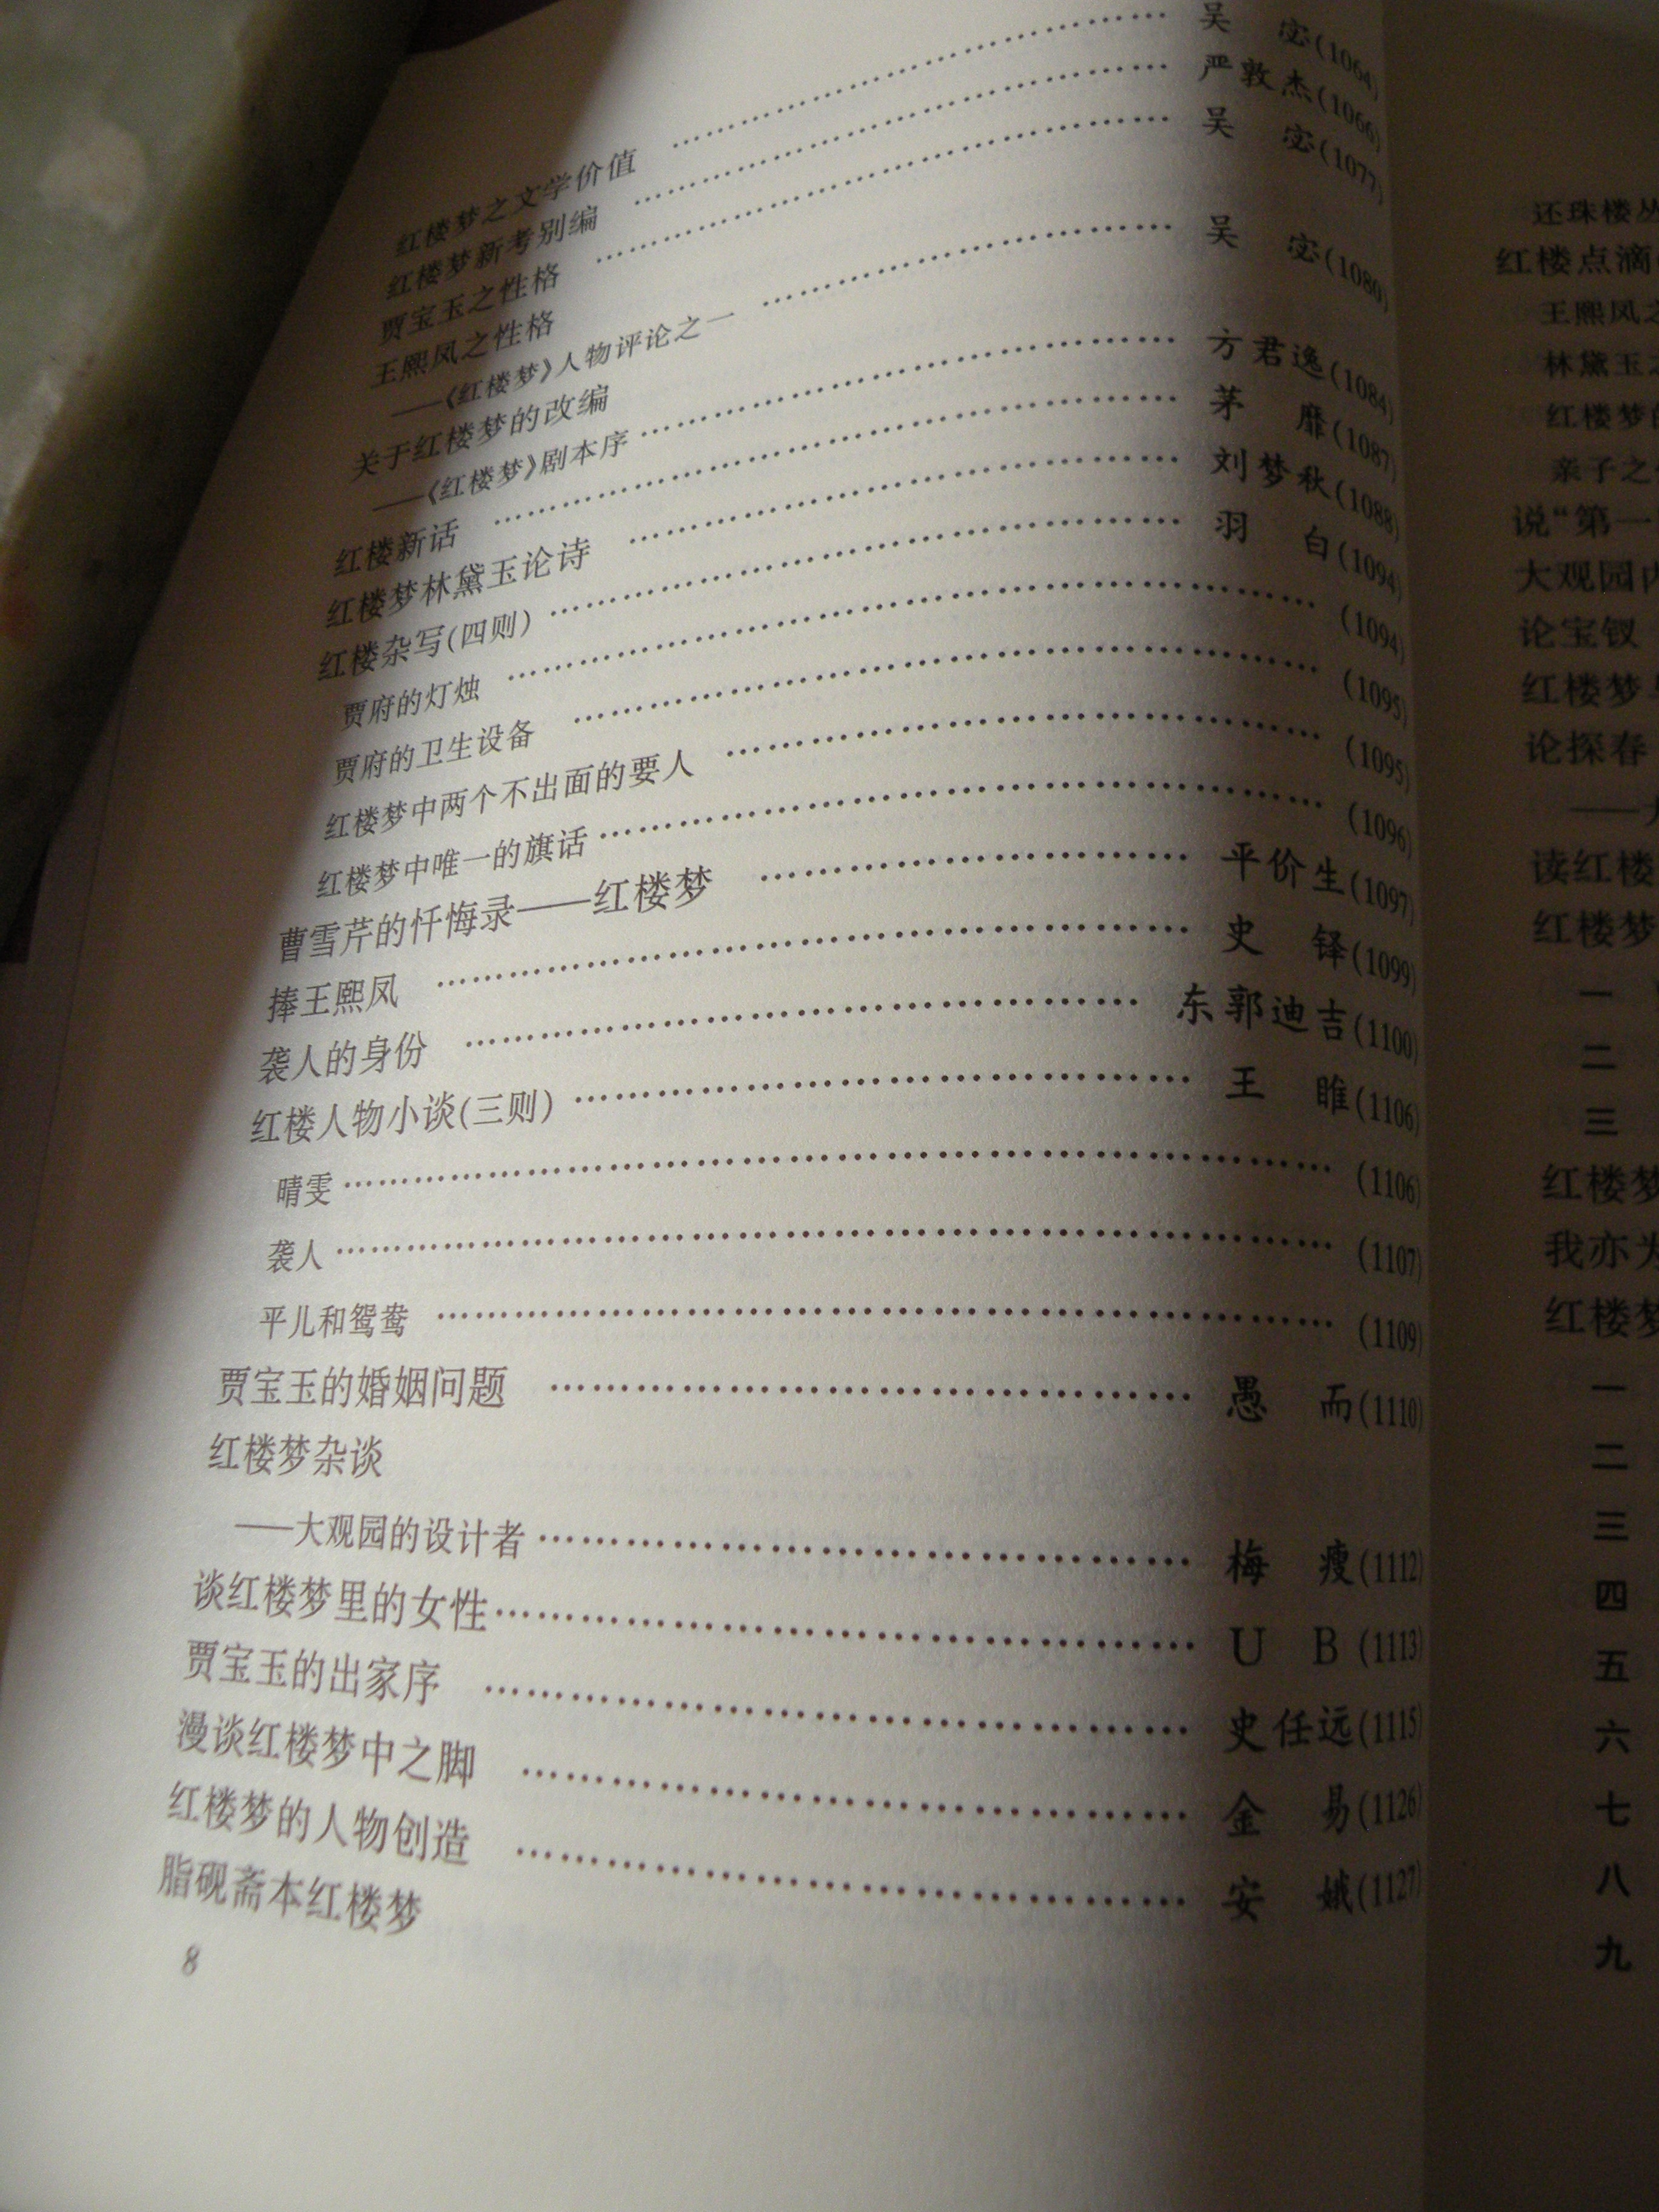 红楼梦之文学价值 …… 吴 宓(1064)
红楼梦新考别编 …… 严敦杰(1066)
贾宝玉之性格 …… 吴 宓(1077)
王熙凤之性格
——《红楼梦》人物评论之一 …… 吴 宓(1080)
关于红楼梦的改编
——《红楼梦》剧本序 …… 方君逸(1084)
红楼新话 …… 茅 靡(1087)
红楼梦林黛玉论诗 …… 刘梦秋(1088)
红楼杂写(四则) …… 羽 白(1094)
贾府的灯烛 …… (1094)
贾府的卫生设备 …… (1095)
红楼梦中两个不出面的要人 …… (1095)
红楼梦中唯一的旗话 …… (1096)
曹雪芹的忏悔录——红楼梦 …… 平价生(1097)
捧王熙凤 …… 史 铎(1099)
袭人的身份 …… 东郭迪吉(1100)
红楼人物小谈(三则) …… 王 睢(1106)
晴雯 …… (1106)
袭人 …… (1107)
平儿和鸳鸯 …… (1109)
贾宝玉的婚姻问题 …… 愚 而(1110)
红楼梦杂谈
——大观园的设计者 …… 梅 瘦(1112)
谈红楼梦里的女性 …… U B (1113)
贾宝玉的出家序 …… 史任远(1115)
漫谈红楼梦中之脚 …… 金 易(1126)
红楼梦的人物创造 …… 安 娥(1127)
脂砚斋本红楼梦
8
还珠楼丛
红楼点滴
王熙凤之
林黛玉之
红楼梦的
亲子之
说“第一
大观园内
论宝钗
红楼梦
论探春
——大
读红楼
红楼梦
一
二
三
红楼梦
我亦为
红楼梦
一
二
三
四
五
六
七
八
九